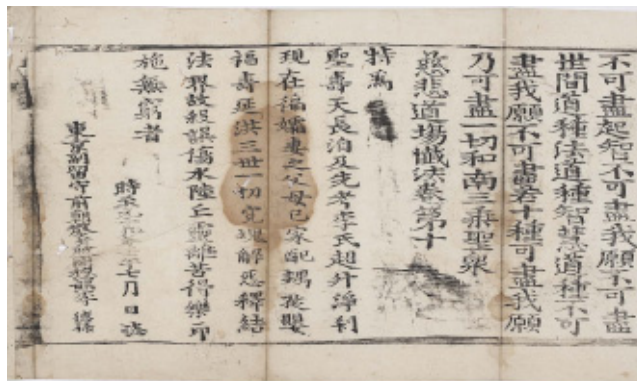 不可盡起智不可盡我願不可盡
世間道種法道種智慧道種不可
盡我願不可盡若十種可盡我願
乃可盡一切和南三乘聖衆
慈悲道場懺法卷第十
特爲
聖壽天長洎及先考李氏超升淨刹
現在福孀妻之父母己家配耦
福壽延洪三世一切寃瑰解惡釋結
法界故殺誤傷水陸丘靈離苦得樂印
施無窮者
時 七月日誌
東京副留守